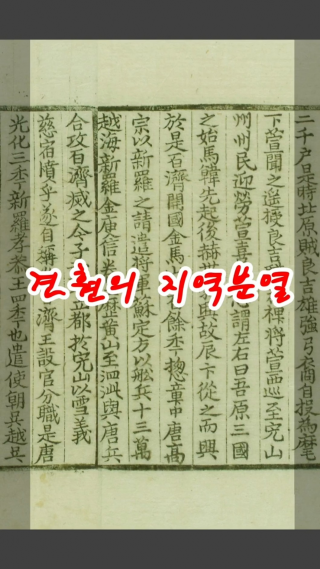 二千戶是時北原賊良吉雄強弓裔自投爲麾
下萱聞之遙授良吉裨將萱西巡至完山
州州民迎勞萱喜心謂左右曰吾原三國
之始馬韓先起後赫世興故辰卞從之而興
於是百濟開國金馬餘年摠章中唐高
宗以新羅之請遣將軍蘇定方以舡兵十三萬
越海新羅金庾信歷黃山至泗沘與唐兵
合攻百濟滅之今予立都於完山以雪義
慈宿憤乎遂自稱濟王設官分職是唐
光化三年新羅孝恭王四年也遣使朝吳越吳
견훤의 지역분열